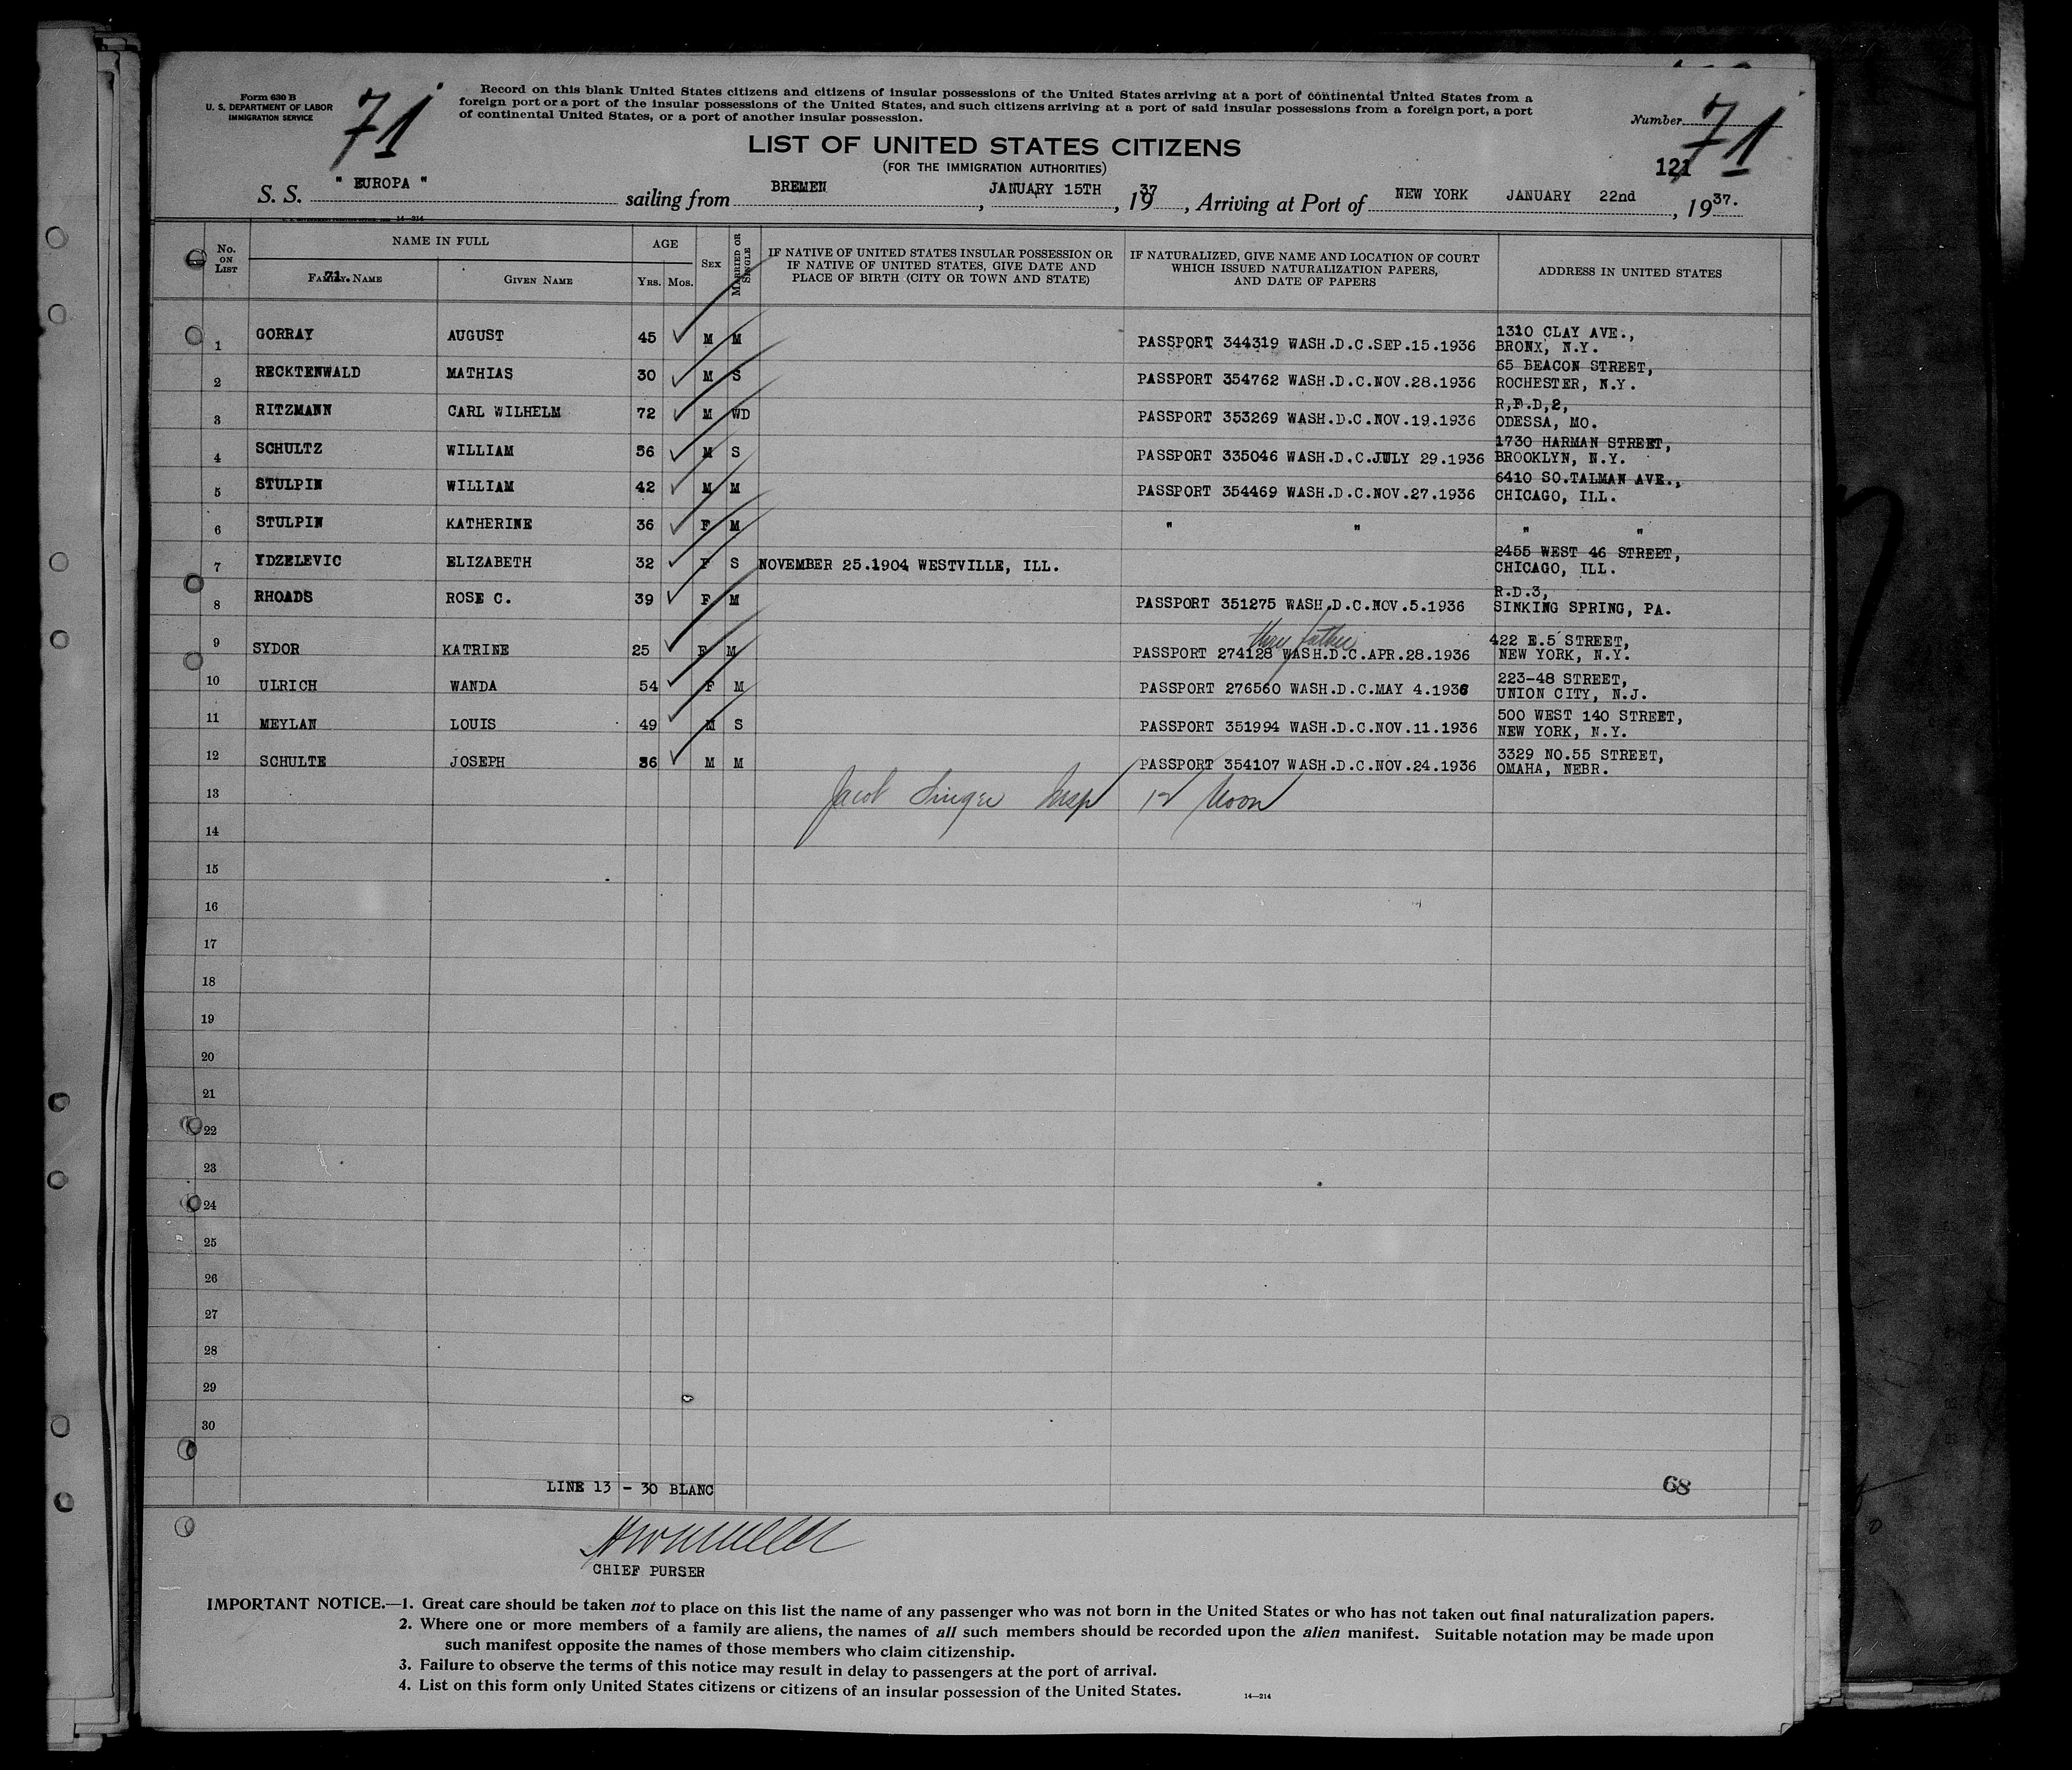 Form 630 B
U. S. DEPARTMENT OF LABOR
IMMIGRATION SERVICE
71
Record on this blank United States citizens and citizens of insular possessions of the United States arriving at a port of continental United States from a
foreign port or a port of the insular possessions of the United States, and such citizens arriving at a port of said insular possessions from a foreign port, a port
of continental United States, or a port of another insular possession.
Number 71
121
LIST OF UNITED STATES CITIZENS
(FOR THE IMMIGRATION AUTHORITIES)
S. S. " EUROPA " sailing from BREMEN, JANUARY 15TH, 1937, Arriving at Port of NEW YORK JANUARY 22nd, 1937.
14—214
No. ON LIST
NAME IN FULL
71.
FAMILY NAME
GIVEN NAME
AGE
YRS. MOS.
SEX
MARRIED OR SINGLE
IF NATIVE OF UNITED STATES INSULAR POSSESSION OR
IF NATIVE OF UNITED STATES, GIVE DATE AND
PLACE OF BIRTH (CITY OR TOWN AND STATE)
IF NATURALIZED, GIVE NAME AND LOCATION OF COURT
WHICH ISSUED NATURALIZATION PAPERS,
AND DATE OF PAPERS
ADDRESS IN UNITED STATES
1 GORRAY AUGUST 45 M M PASSPORT 344319 WASH.D.C.SEP.15.1936 1310 CLAY AVE.,
BRONX, N.Y.
2 RECKTENWALD MATHIAS 30 M S PASSPORT 354762 WASH.D.C.NOV.28.1936 65 BEACON STREET,
ROCHESTER, N.Y.
3 RITZMANN CARL WILHELM 72 M WD PASSPORT 353269 WASH.D.C.NOV.19.1936 R,F.D,2,
ODESSA, MO.
4 SCHULTZ WILLIAM 56 M S PASSPORT 335046 WASH.D.C.JULY 29.1936 1730 HARMAN STREET,
BROOKLYN, N.Y.
5 STULPIN WILLIAM 42 M M PASSPORT 354469 WASH.D.C.NOV.27.1936 6410 SO.TALMAN AVE.,
CHICAGO, ILL.
6 STULPIN KATHERINE 36 F M " " " "
7 YDZELEVIC ELIZABETH 32 F S NOVEMBER 25.1904 WESTVILLE, ILL. 2455 WEST 46 STREET,
CHICAGO, ILL.
8 RHOADS ROSE C. 39 F M PASSPORT 351275 WASH.D.C.NOV.5.1936 R.D.3,
SINKING SPRING, PA.
thru father
9 SYDOR KATRINE 25 F M PASSPORT 274128 WASH.D.C.APR.28.1936 422 E.5 STREET,
NEW YORK, N.Y.
10 ULRICH WANDA 54 F M PASSPORT 276560 WASH.D.C.MAY 4.1936 223-48 STREET,
UNION CITY, N.J.
11 MEYLAN LOUIS 49 M S PASSPORT 351994 WASH.D.C.NOV.11.1936 500 WEST 140 STREET,
NEW YORK, N.Y.
12 SCHULTE JOSEPH 36 M M PASSPORT 354107 WASH.D.C.NOV.24.1936 3329 NO.55 STREET,
OMAHA, NEBR.
13 Jacob Singer Insp 12 Noon
14
15
16
17
18
19
20
21
22
23
24
25
26
27
28
29
30
LINE 13 - 30 BLANC
68
CHIEF PURSER
IMPORTANT NOTICE.—1. Great care should be taken not to place on this list the name of any passenger who was not born in the United States or who has not taken out final naturalization papers.
2. Where one or more members of a family are aliens, the names of all such members should be recorded upon the alien manifest. Suitable notation may be made upon
such manifest opposite the names of those members who claim citizenship.
3. Failure to observe the terms of this notice may result in delay to passengers at the port of arrival.
4. List on this form only United States citizens or citizens of an insular possession of the United States.
14—214